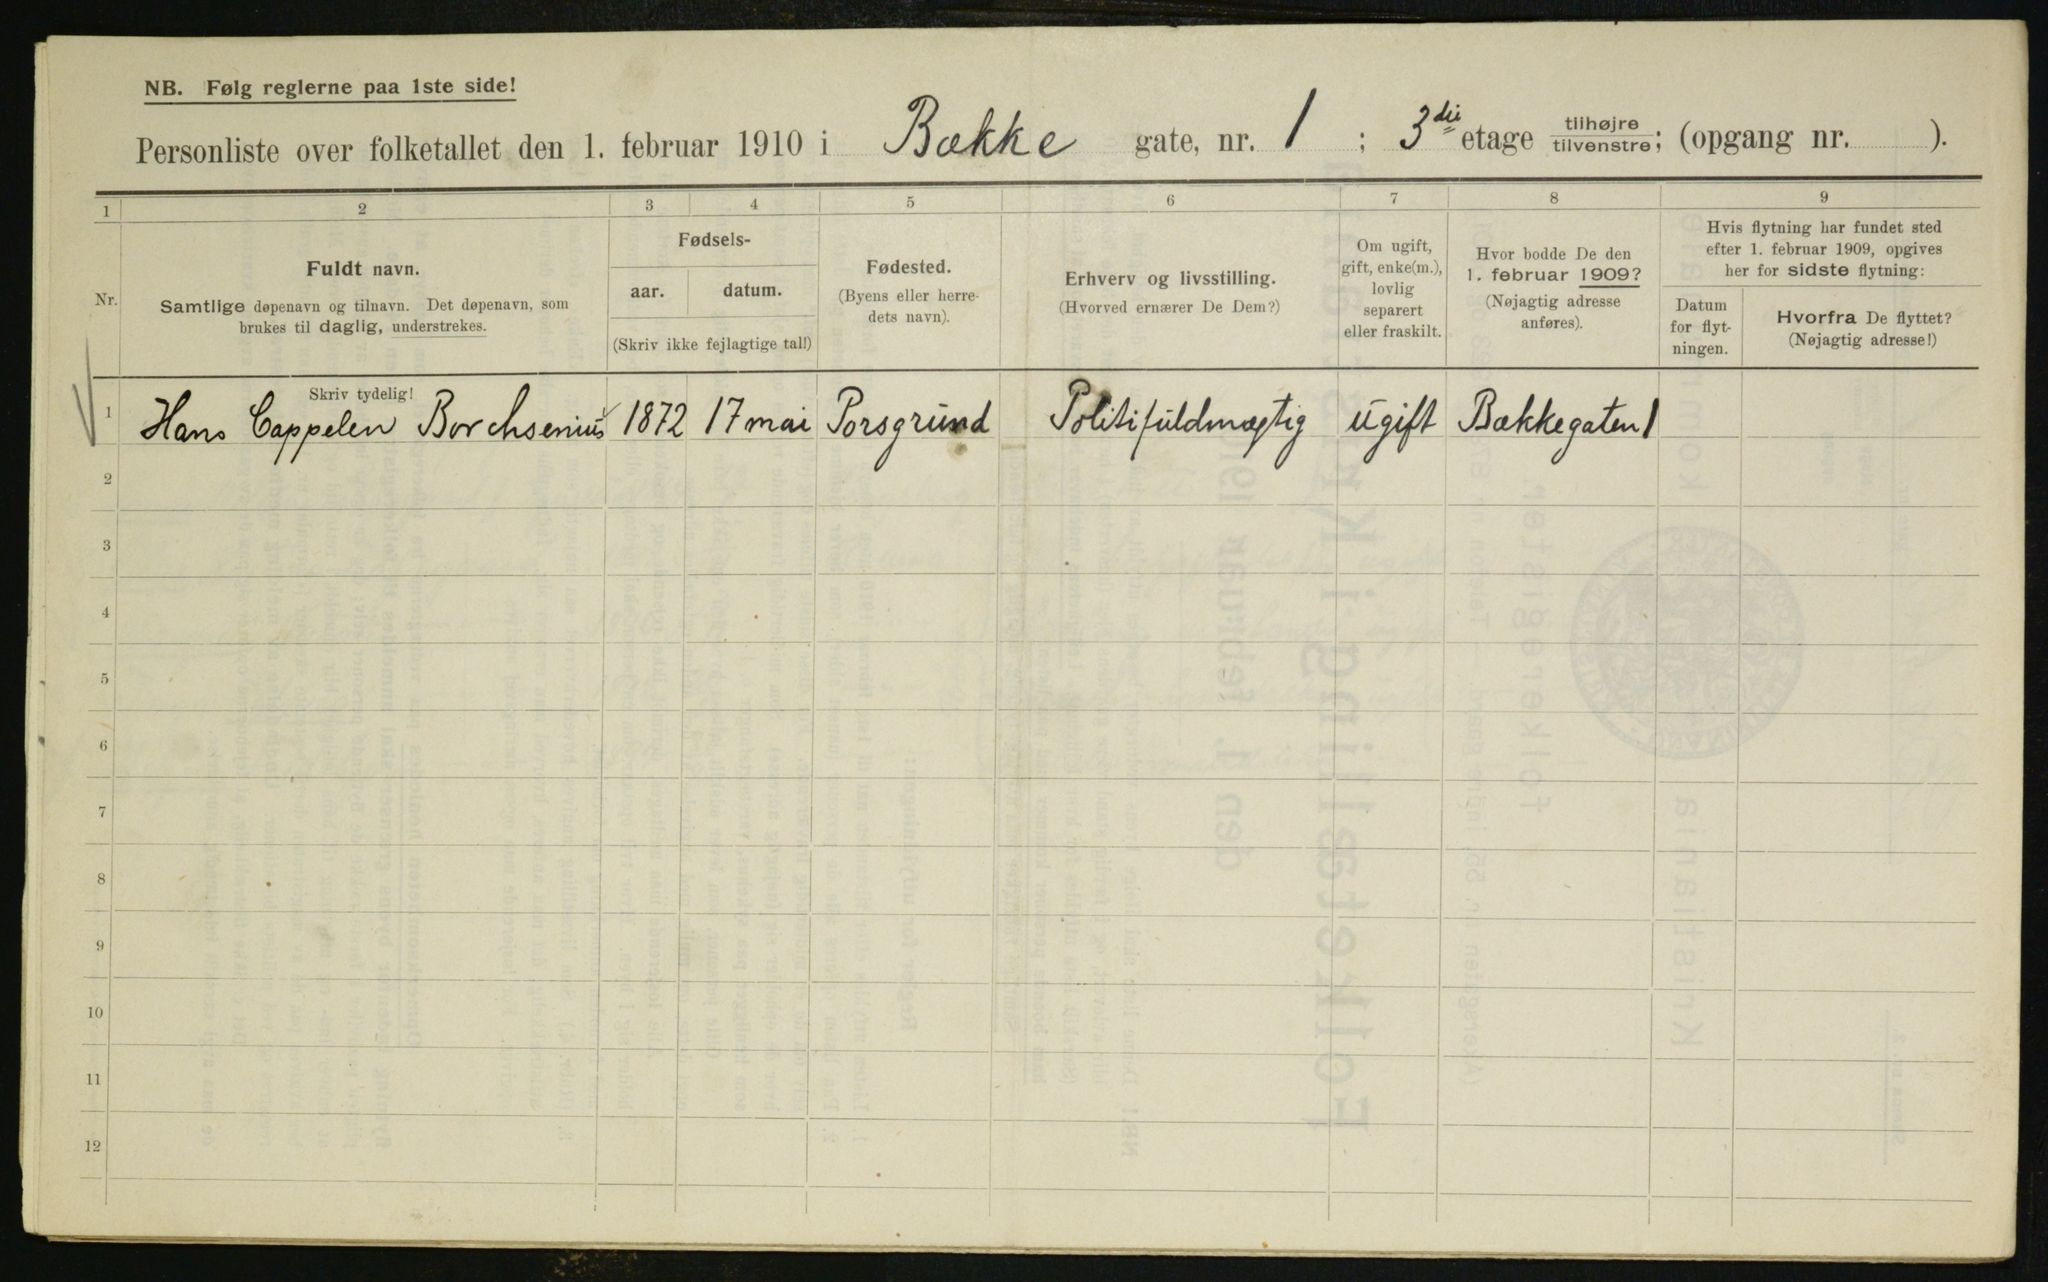 NB. Følg reglerne paa 1ste side!
Personliste over folketallet den 1. februar 1910 i Bække gate, nr. 1 ; 3die etage tilhøjre tilvenstre; (opgang nr. ).
1 2 3 4 5 6 7 8 9
Nr.
Fuldt navn.
Samtlige døpenavn og tilnavn. Det døpenavn, som
brukes til daglig, understrekes.
Skriv tydelig!
Fødsels-
aar. datum.
(Skriv ikke fejlagtige tal!)
Fødested.
(Byens eller herre-
dets navn).
Erhverv og livsstilling.
(Hvorved ernærer De Dem?)
Om ugift,
gift, enke(m.),
lovlig
separert
eller fraskilt.
Hvor bodde De den
1. februar 1909?
(Nøjagtig adresse
anføres).
Hvis flytning har fundet sted
efter 1. februar 1909, opgives
her for sidste flytning:
Datum
for flyt-
ningen.
Hvorfra De flyttet?
(Nøjagtig adresse!)
1 Hans Cappelen Borchsenius 1872 17 mai Porsgrund Politifuldmægtig ugift Bækkegaten 1
2
3
4
5
6
7
8
9
10
11
12